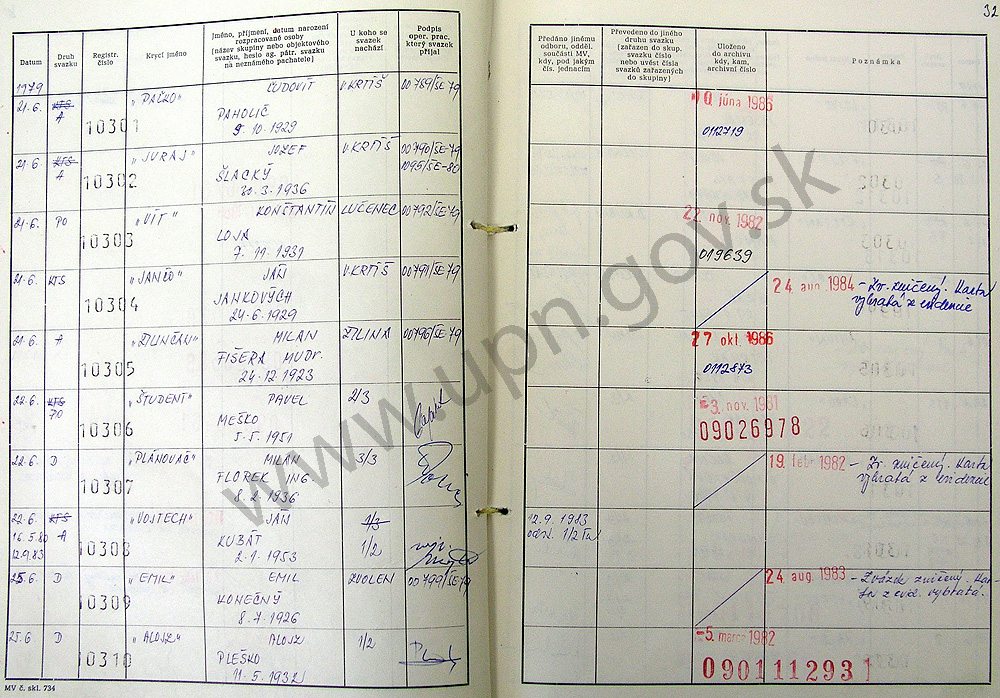 32
Datum
Druh svazku
Registr. číslo
Krycí jméno
Jméno, příjmení, datum narození rozpracované osoby (název skupiny nebo objektového svazku, heslo ag. pátr. svazku na neznámého pachatele)
U koho se svazek nachází
Podpis oper. prac. který svazek přijal
Předáno jinému odboru, odděl. součásti MV, kdy, pod jakým čís. jednacím
Převedeno do jiného druhu svazku (zařazen do skup. svazku číslo nebo uvést čísla svazků zařazených do skupiny)
Uloženo do archivu kdy, kam, archivní číslo
Poznámka
1979
21.6. KTS A 10301 "PAČKO" ĽUDOVÍT V.KRTÍŠ 00789/ŠE-79
PAHOLIČ
9.10.1929
10 júna 1986
0112719
21.6. KTS A 10302 "JURAJ" JOZEF V.KRTÍŠ 00790/ŠE-79
1095/ŠE-80
ŠLACKÝ
30.3.1936
21.6. PO 10303 "VÍT" KONŠTANTÍN LUČENEC 00792/ŠE79
LOJA
7.11.1931
22 nov. 1982
019639
21.6. KTS 10304 "JANČO" JÁN V.KRTÍŠ 00791/ŠE79
JANKOVÝCH
24.6.1929
24 aug. 1984 - Zv. zničený. Karta
vybratá z evidencie
21.6. A 10305 "DUNČAN" MILAN ŽILINA 00796/ŠE79
FIŠERA MUDr.
24.12.1923
27 okt. 1986
0112873
22.6. KTS PO 10306 "ŠTUDENT" PAVEL 2/3
MEŠKO
5.5.1951
-3. nov. 1981
09026978
22.6. D 10307 "PLÁNOVAČ" MILAN 3/3
FLOREK ING
8.2.1936
19. febr 1982 - Zv. zničený. Karta
vybratá z evidencie
22.6. KTS 10308 "VOJTECH" JÁN 1/3
16.5.80 A
12.9.83
KUBÁT 1/2
2.1.1953
12.9.1983
odsl. 1/2
25.6. D 10309 "EMIL" EMIL ZVOLEN 00799/ŠE79
KONEČNÝ
8.7.1926
24 aug. 1983 - Zväzok zničený.
z evid. vybratá.
25.6 D 10310 "ALOJZ" ALOJZ 1/2
PLEŠKO
11.5.1932
-5. marca 1982
0901112931
MV č. skl. 734
www.upn.gov.sk